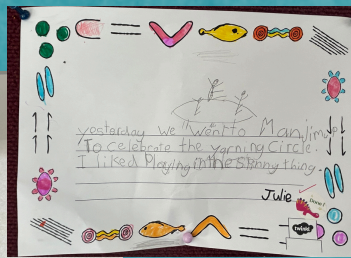 yesterday we went to Manjimup
To celebrate the yarning Circle.
I liked Playing in the spinny thing.
Julie
twinkl